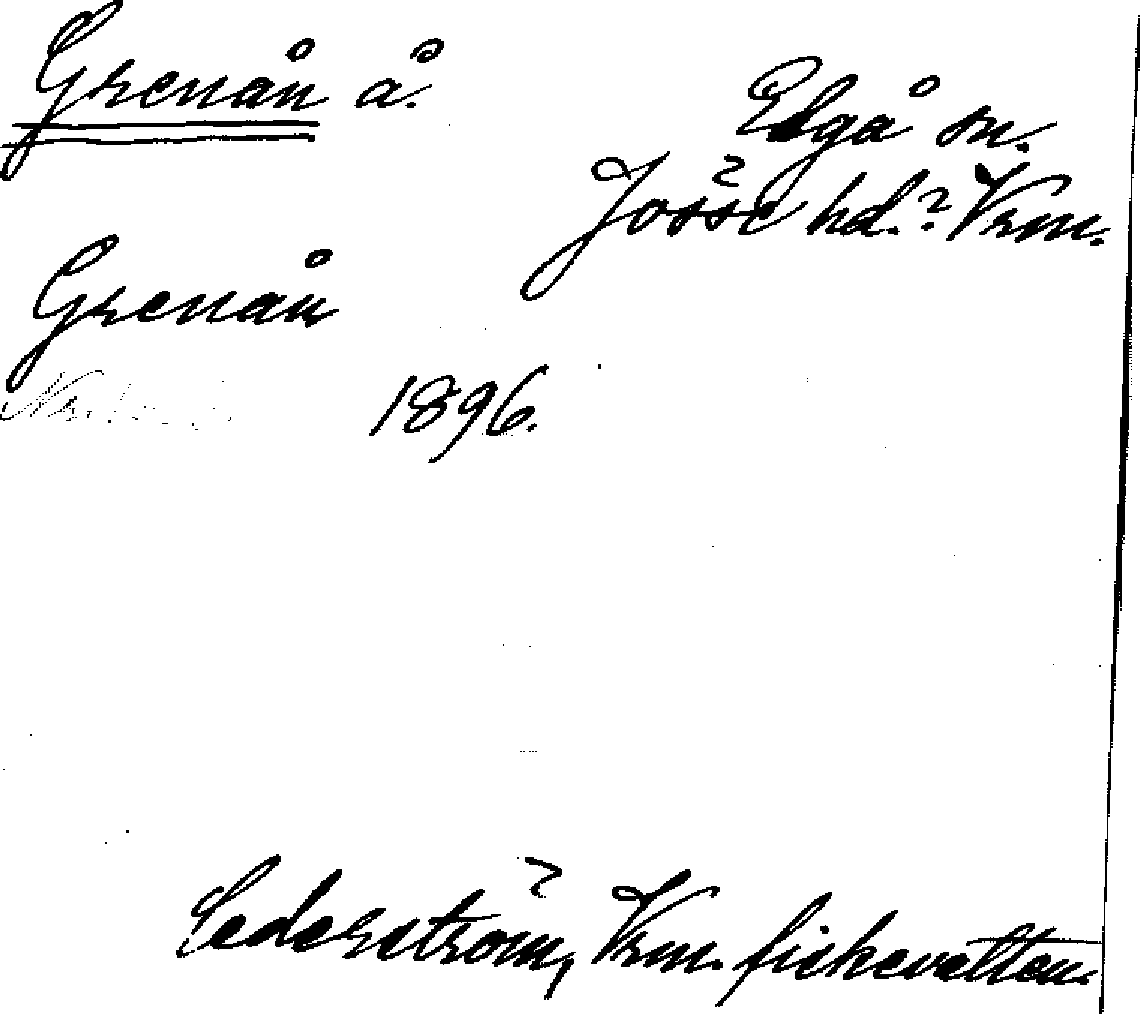 Grenån å.
Elgå sn.
Jösse hd.? Vrm.
Grenån
1896.
Cederström, Vrm. fiskevatten.